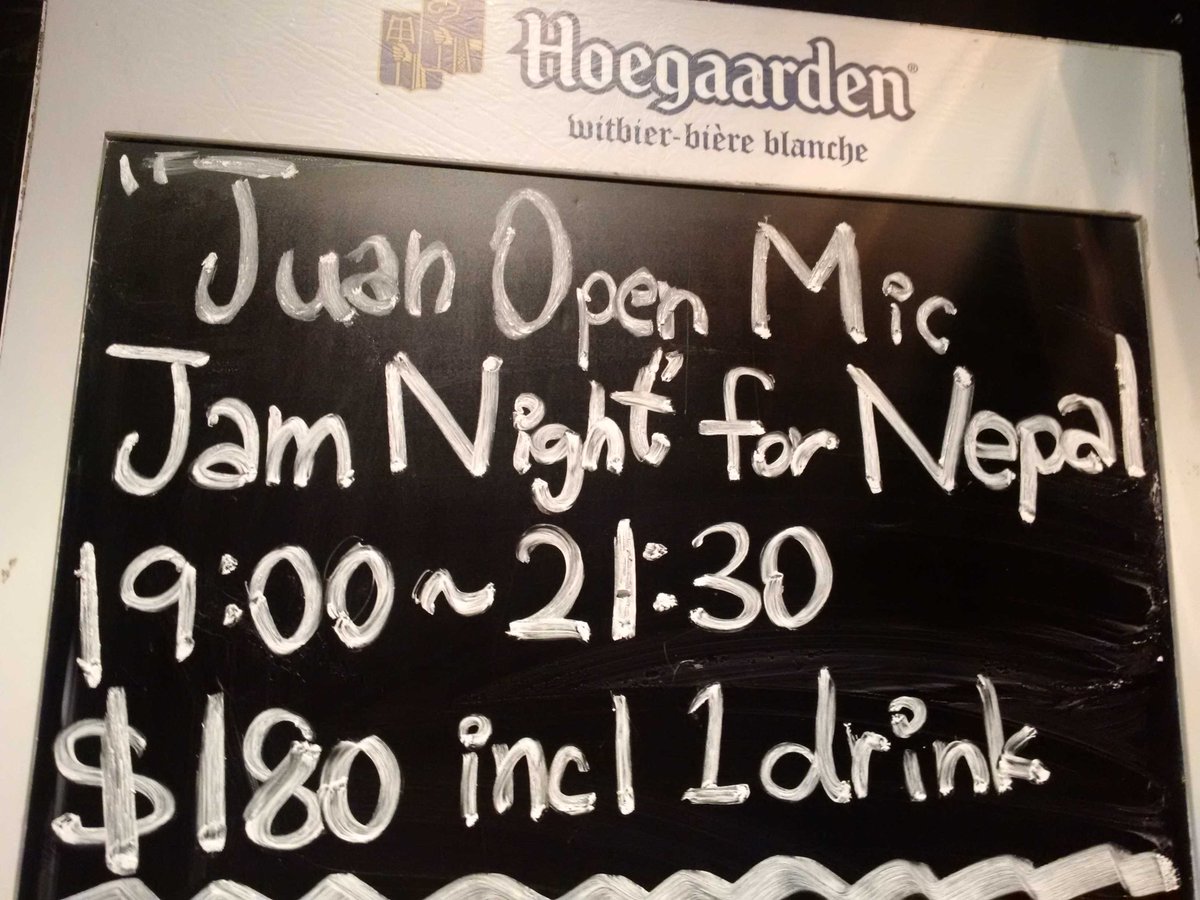 Hoegaarden®
witbier-bière blanche
"Juan Open Mic
Jam Night" for Nepal
19:00~21:30
$180 incl 1 drink